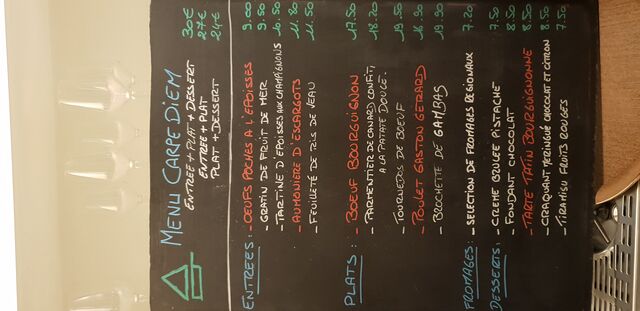 MENU CARPE DIEM
ENTRÉE + PLAT + DESSERT 30€
ENTRÉE + PLAT 27€
PLAT + DESSERT 24€
ENTRÉES: - OEUFS POCHÉS A L'EPOISSES 9.00
- GRATIN DE FRUIT DE MER 9.50
- TARTINE D'EPOISSES AUX CHAMPIGNONS 10.50
- AUMONIERE D'ESCARGOTS 11.80
- FEUILLETÉ DE RIS DE VEAU 11.50
PLATS: - BOEUF BOURGUIGNON 17.50
- PARMENTIER DE CANARD CONFIT 18.20
A LA PATATE DOUCE.
- TOURNEDOS DE BOEUF 19.50
- POULET GASTON GERARD 16.90
- BROCHETTE DE GAMBAS 19.90
FROMAGES: - SELECTION DE FROMAGES RÉGIONAUX 7.20
DESSERTS: - CREME BRULEE PISTACHE 7.50
- FONDANT CHOCOLAT 8.50
- TARTE TATIN BOURGUIGNONNE 8.50
- CRAQUANT MERINGUÉ CHOCOLAT ET CITRON 8.50
- TIRAMISU FRUITS ROUGES 7.50